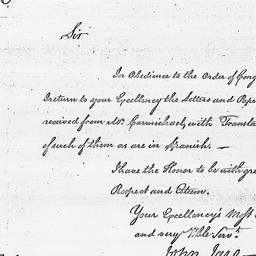 Sir
In Obedience to the Order of Cong
I return to your Excellency the Letters and Pape
received from Mr. Carmichael, with Transla
of such of them as are in Spanish. —
I have the Honor to be with gre
Respect and Esteem.
Your Excellency's Most
and very Hble Servt.
John Jay